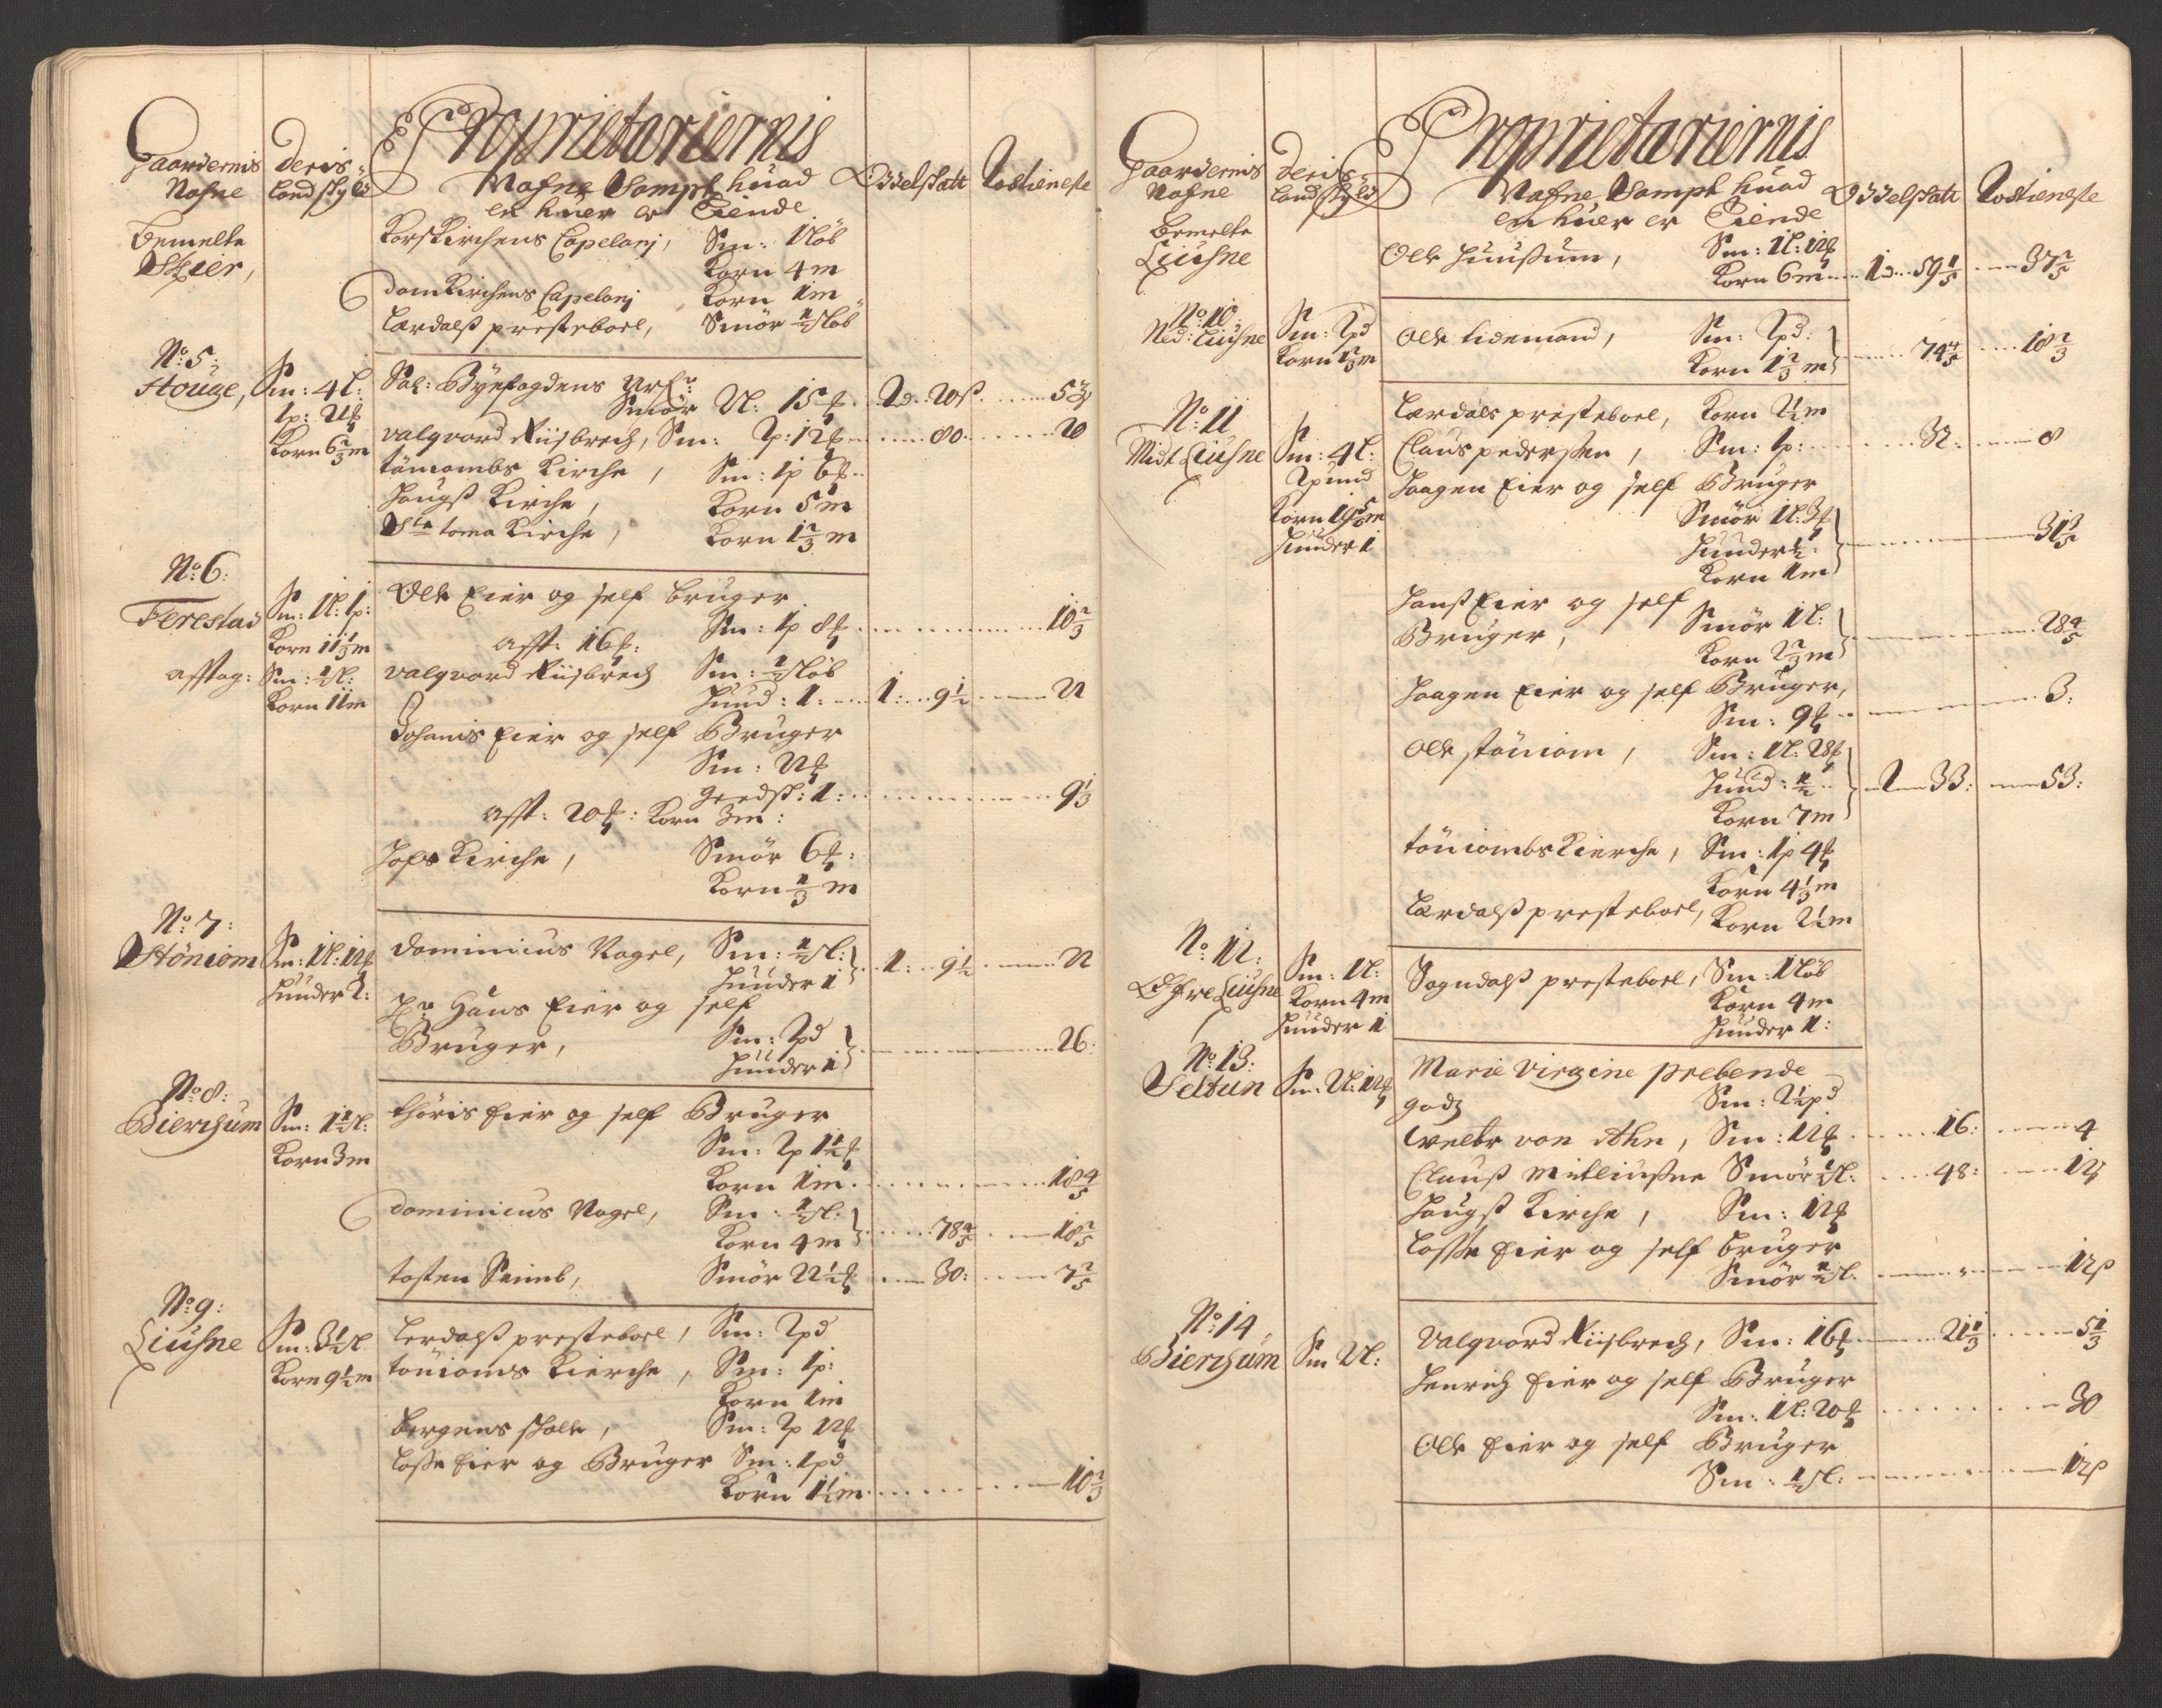 Gaardernis Nafne
Deris Landskyld
Proprietariernis
Nafne Sampt huad
en huer er Eiende
Oddelskatt
Rostieneste
bemelte
Schier,
Korskirchens Capelanj, Sm: 1 løb
Korn 4 m
domkirchens Capelanj Korn 1 m
Lærdalß presteboel, Smör ½ løb
No: 5:
Houge, Sm: 4 l:
Sal: Byefogdens Arf:
Smör 2 l: 15
Korn 6⅔ m
valgvord Riisbrech, Sm: 2p: 12 80 20
töniombs Kirche, Sm: 1p 6
Hougs Kirche, Korn 5 m
Ste toma Kirche, Korn 1⅔ m
No: 6:
Ferestad Sm: 1 l: 1p:
Korn 11⅓ m
Ole Eier og self bruger
Sm: 1p 8 10⅔
afft: 16
afftag: Sm: ½ l:
Korn 11 m
valgvord Riisbrech Sm: ½ løb
Hund: 1: 1: 9½ 22
Johanis Eier og self Bruger
Sm: 22
giedsk: 1: 9⅓
afft: 20: Korn 3 m:
Hofs Kirche, Smör 6
Korn ⅔ m
No: 7:
Stöniom Sm: 1 l: 12
Huuder 2:
dominicus Nagel, Sm: ½ l:
Huuder 1 1: 9½ 22
Hr Hans Eier og self
Bruger, Sm: 2pd
Huuder 1 26:
No: 8:
Bierchum Sm: 1½ l:
Korn 3 m
thoris Eier og self Bruger
Sm: 2p 1½
Korn 1 m 18⅘
dominicus Nagel, Sm: ½ l:
Korn 4 m 78⅘ 18⅖
tosten Seimb, Smör 22½ 30: 7⅖
No: 9:
Liusne Sm: 3½ l
Korn 9½ m
Lerdalß presteboel, Sm: 2pd
tönioms Kierche, Sm: 1p:
Korn 1 m
bergens skole, Sm: 2p 12
Lasse Eier og Bruger Sm: 1pd
Korn 1½ m 10⅔
Gaardernis Nafne
Deris Landskyld
Proprietariernis
Nafne Sampt huad
en huer er Eiende
Oddelskatt
Rostieneste
bemelte
Liusne
Ole Huusum, Sm: 1 l: 12
Korn 6 m 1d 59⅕ 37⅖
No: 10:
Ned: Liusne Sm: 2pd
Korn 1⅔ m
Ole tidemand, Sm: 2pd:
Korn 1⅔ m 74⅘ 18⅔
No: 11
Midt Liusne Sm: 4 l:
2 pund
Huuder 1
Lærdals presteboel, Korn 2½ m
Claus pedersen, Sm: 1p: 32: 8
Haagen Eier og self Bruger
Smör 1 l: 3
Huuder ½:
Korn 1 m
Hans Eier og self
Bruger, Smör 1 l:
Korn 2⅔ m 28⅘
Haagen Eier og self Bruger,
Sm: 9 3:
Ole stöniom, Sm: 1 l: 28
Hund: ½
Korn 7 m 2 33: 53:
töniombs Kierche, Sm: 1p 4
Korn 4⅓ m
Lærdalß presteboel, Korn 2½ m
No: 12:
Öfre Liusne Sm: 1 l:
Korn 4 m
Huuder 1
Sogndalß presteboel, Sm: 1 løb
Korn 4 m
Huuder 1:
No: 13:
Seltun Sm: 2 l: 12
Marie virgine prebende
godz Sm: 2½ pd
welbr von Ahn, Sm: 12 16: 4
Clauß Mitliußne Smör ½ l: 48: 12
Hougß Kirche, Sm: 12
Lasse Eier og self bruger
Smör ½ l: 12ß
No: 14
Bierchum Sm 2 l:
valgvord Riisbrech, Sm: 16 21⅓ 5⅓
Henrich Eier og self Bruger
Sm: 1 l: 20 30
Ole Eier og self Bruger
Sm: ½ l: 12ß